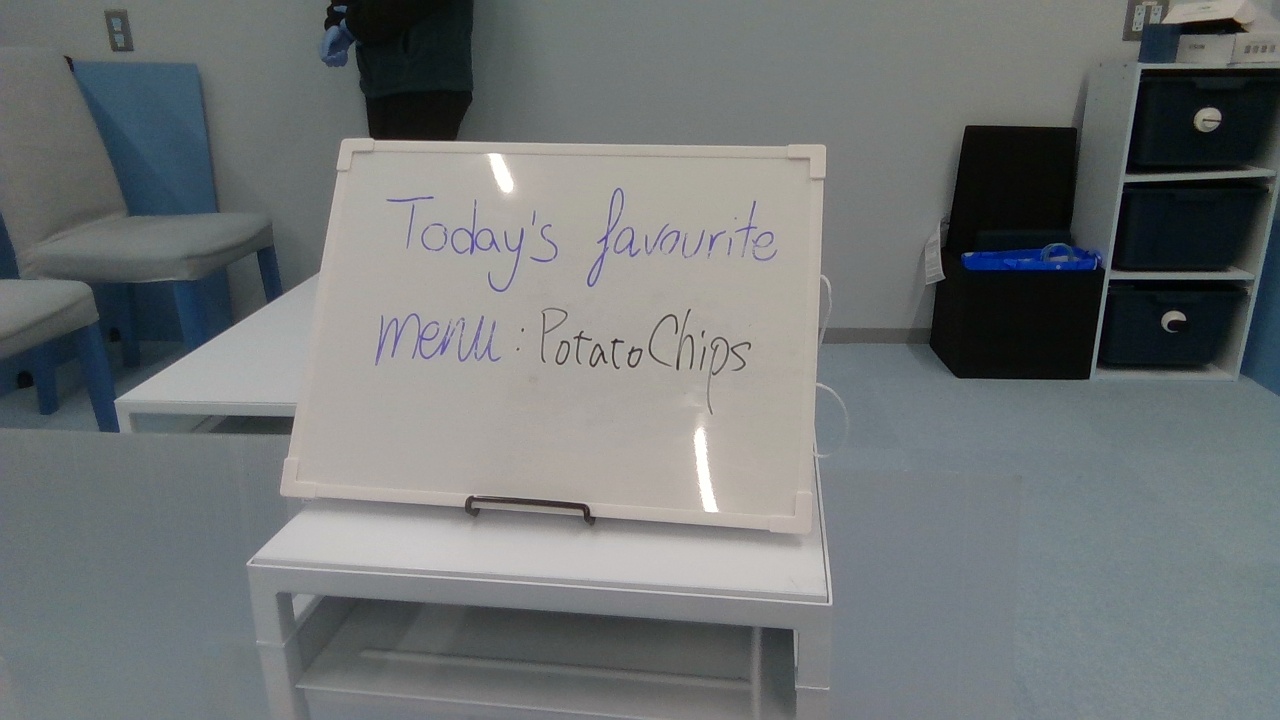 Today's favourite
menu: Potato Chips